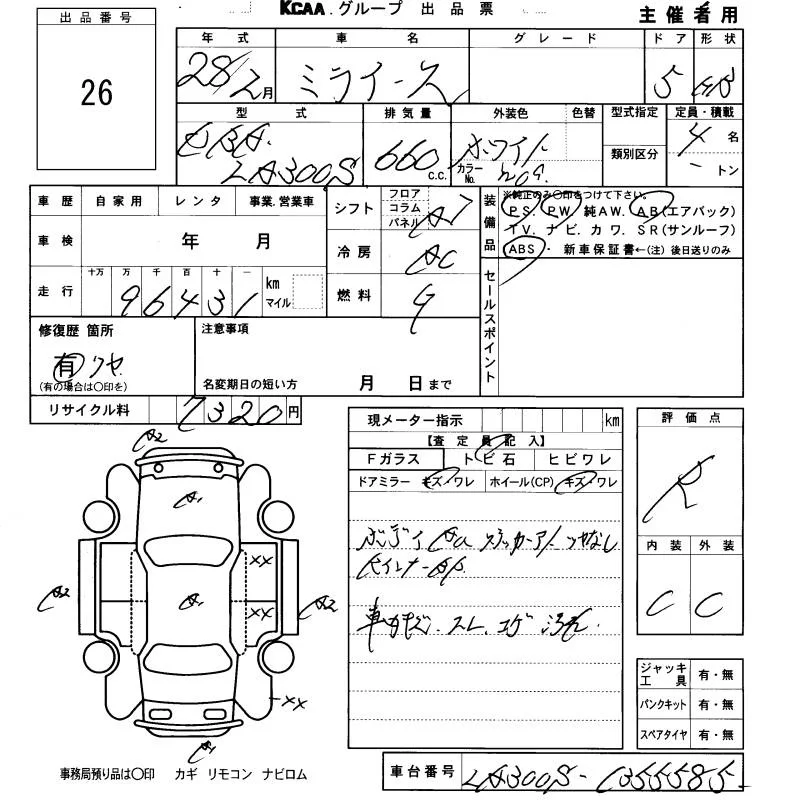 KCAA.グループ 出品票
主催者用
出品番号
26
年式 車名 グレード ドア 形状
28/2月 ミライース 5 HB
型式 排気量 外装色 色替 型式指定 定員・積載
類別区分
DBA.
LA300S 660 c.c. ホワイト カラーNo. W09. 4名
- トン
車歴 自家用 レンタ 事業.営業車
車検 年 月
走行 十万 万 千 百 十 一
96431 km マイル
シフト フロア コラム パネル A7
冷房 AC
燃料 G
装備品
※純正のみ○印をつけて下さい。
PS. PW. 純AW. AB(エアバック)
TV. ナビ. カワ. SR(サンルーフ)
ABS・ 新車保証書←(注)後日送りのみ
セールスポイント
修復歴 箇所
有 クサ
(有の場合は○印を)
注意事項
名変期日の短い方 月 日まで
リサイクル料 7320円
現メーター指示 km
【査定員記入】
Fガラス トビ石 ヒビワレ
ドアミラー キズ/ワレ ホイール(CP) キズ/ワレ
車内 スレ. コゲ 汚れ.
評価点
R
内装 外装
C C
A2
A1
XX
A1
XX
A2
A2
XX
ジャッキ工具 有・無
パンクキット 有・無
スペアタイヤ 有・無
事務局預り品は○印 カギ リモコン ナビロム
車台番号 LA300S-1355585